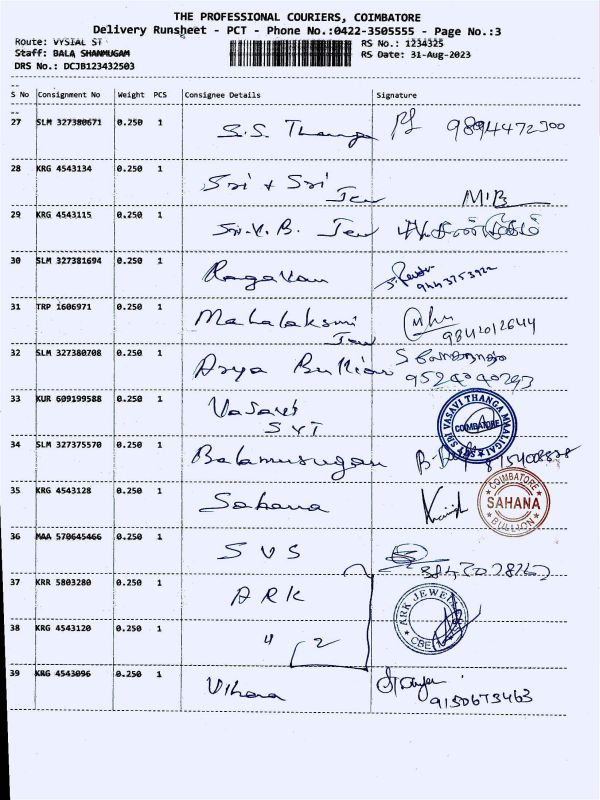 THE PROFESSIONAL COURIERS, COIMBATORE
Delivery Runsheet - PCT - Phone No.:0422-3505555 - Page No.:3
Route: VYSIAL ST
RS No.: 1234325
Staff: BALA SHANMUGAM
RS Date: 31-Aug-2023
DRS No.: DCJB123432503
S No Consignment No Weight PCS Consignee Details Signature
27 SLM 327380671 0.250 1 S.S. Thanga
28 KRG 4543134 0.250 1 Sri + Sri Jew
29 KRG 4543115 0.250 1 Sri. V. B. Jew
30 SLM 327381694 0.250 1 Ragavan
31 TRP 1606971 0.250 1 Mahalaksmi Jew 9842012644
32 SLM 327380708 0.250 1 Arya Bullion
33 KUR 609199588 0.250 1 Vasavi SVT
SRI VASAVI THANGA MAALIGAI
COIMBATORE
34 SLM 327375570 0.250 1 Balamurugan
35 KRG 4543128 0.250 1 Sahana
COIMBATORE
SAHANA
BULLION
36 MAA 570645466 0.250 1 SVS
37 KRR 5803280 0.250 1 ARK
ARK JEWEL
CBE
38 KRG 4543120 0.250 1 " 2
39 KRG 4543096 0.250 1 Vihana 9150673463